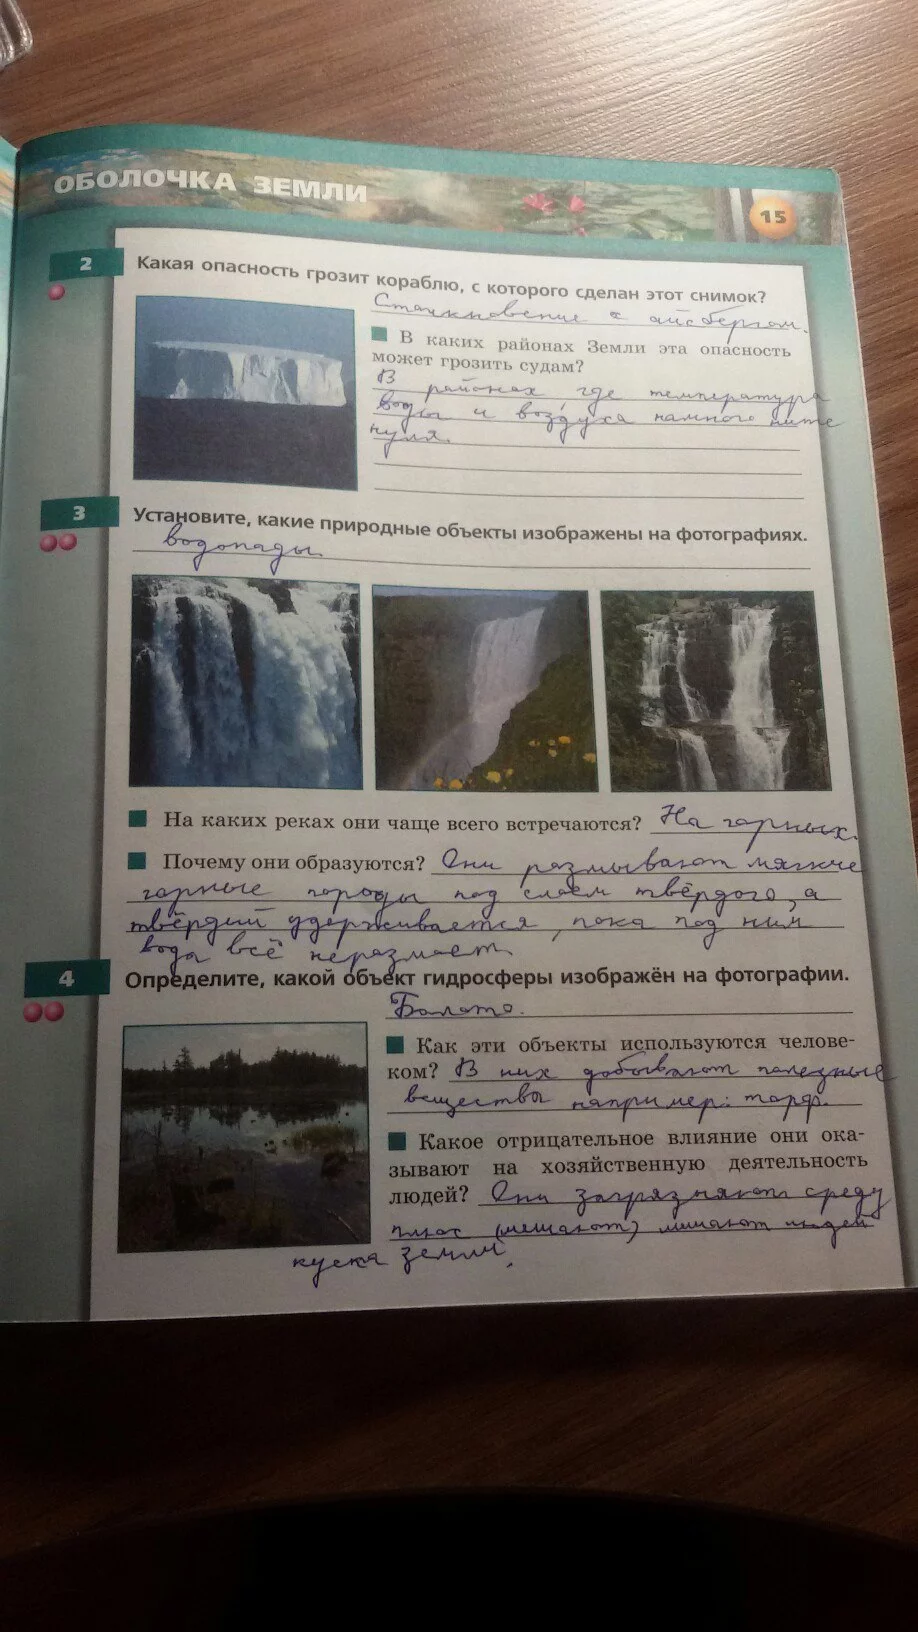 ОБОЛОЧКА ЗЕМЛИ
15
2
Какая опасность грозит кораблю, с которого сделан этот снимок?
Столкновение с айсбергом.
В каких районах Земли эта опасность
может грозить судам?
В районах, где температура
воды и воздуха намного ниже
нуля.
3
Установите, какие природные объекты изображены на фотографиях.
водопады.
На каких реках они чаще всего встречаются? На горных.
Почему они образуются? Они размывают мягкие
горные породы под слоем твёрдого, а
твёрдый удерживается, пока под ним
вода всё неразмоет.
4
Определите, какой объект гидросферы изображён на фотографии.
Болото.
Как эти объекты используются челове-
ком? В них добывают полезные
вещества например: торф.
Какое отрицательное влияние они ока-
зывают на хозяйственную деятельность
людей? Они загрязняют среду
плюс (мешают) лишают людей
куска земли.